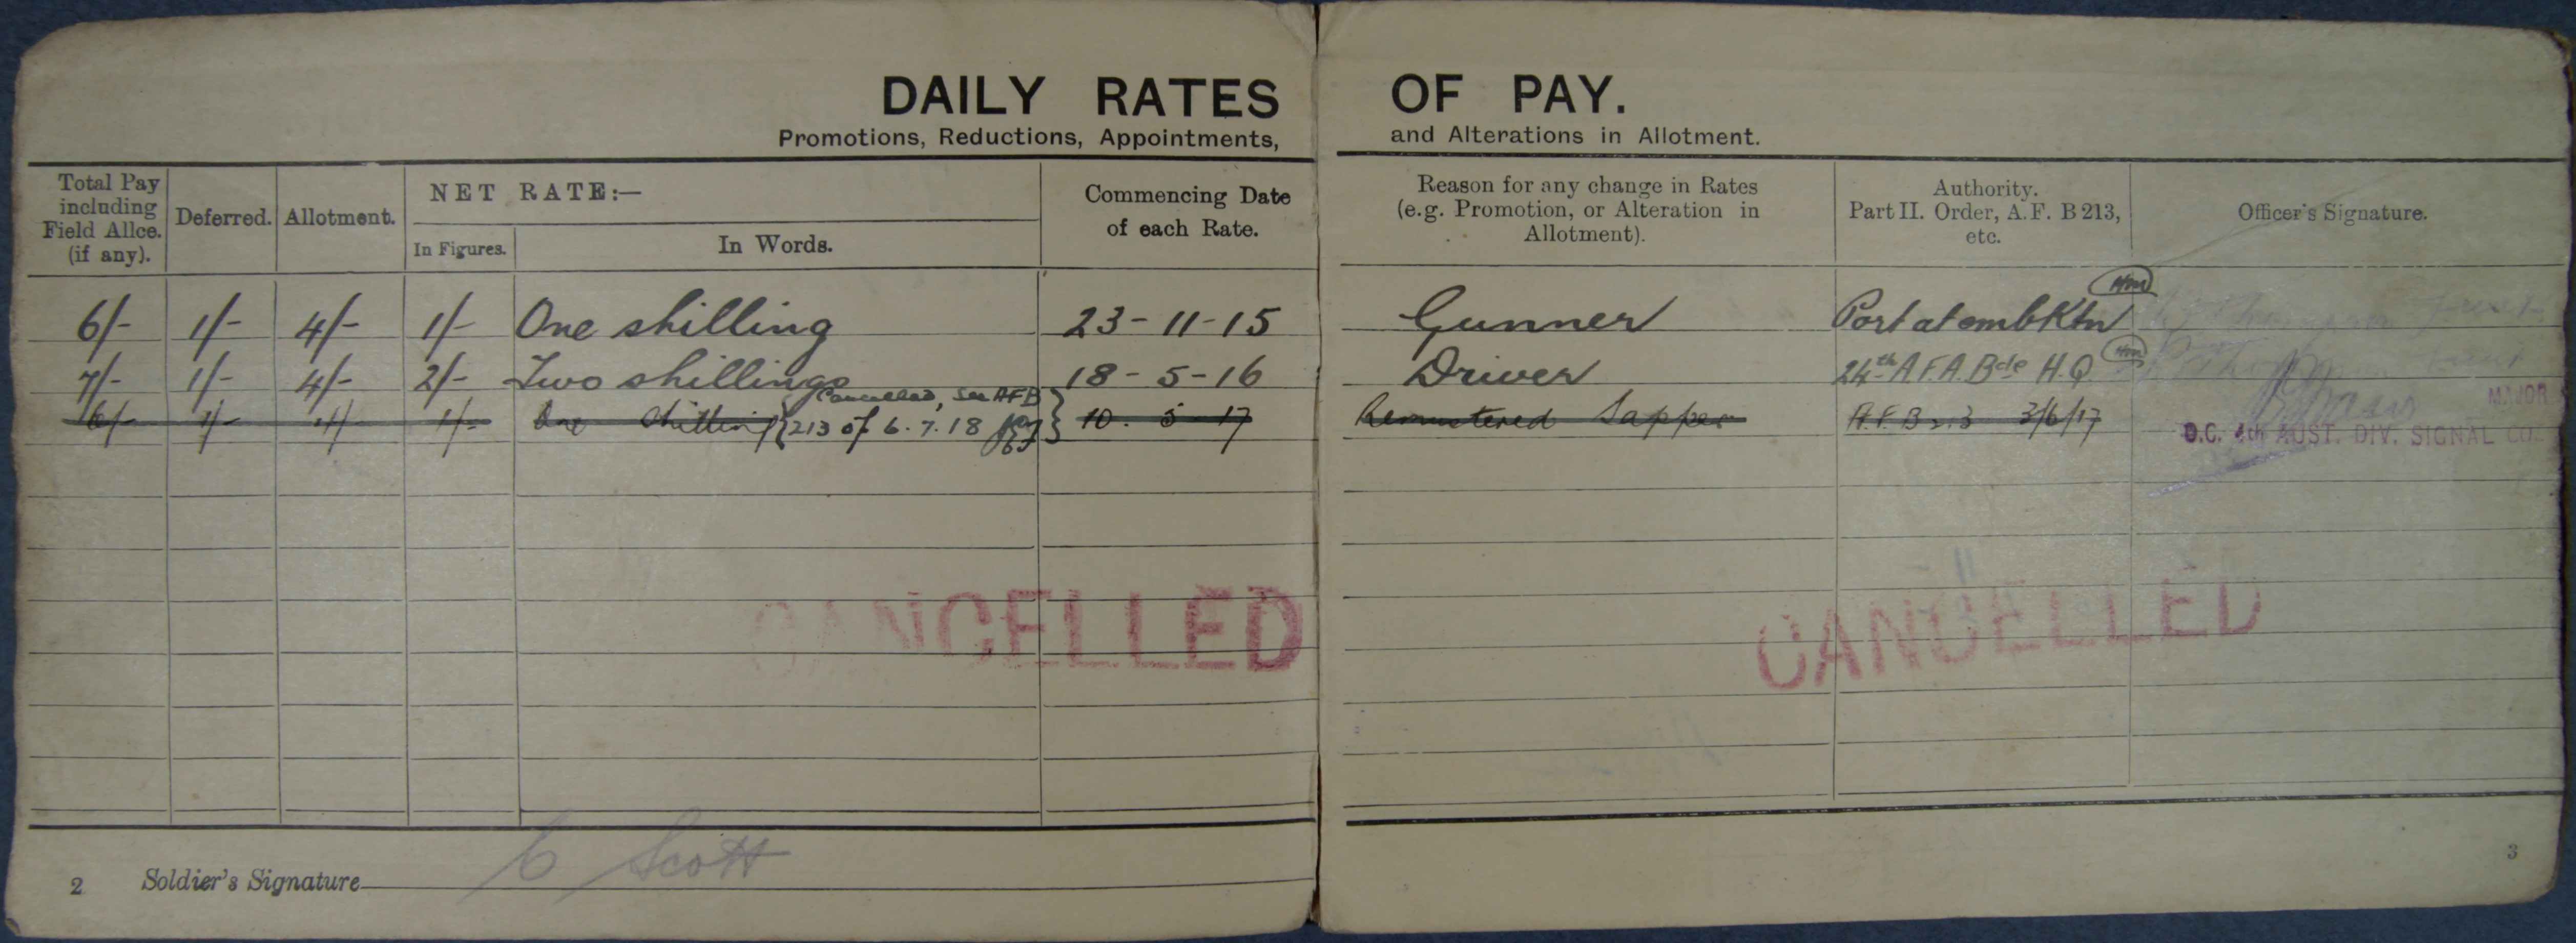 DAILY RATES OF PAY.
Promotions, Reductions, Appointments, and Alterations in Allotment.
Total Pay including Field Allce. (if any).
Deferred.
Allotment.
NET RATE:—
In Figures.
In Words.
Commencing Date of each Rate.
Reason for any change in Rates (e.g. Promotion, or Alteration in Allotment).
Authority. Part II. Order, A.F. B 213, etc.
Officer's Signature.
6/- 1/- 4/- 1/- One shilling 23-11-15 Gunner Port at embKtn
7/- 1/- 4/- 2/- Two shillings 18-5-16 Driver 24th A.F.A. Bde H.Q.
Cancelled, see AFB
213 of 6.7.18
6/- 1/- 4/- 1/- One shilling 10. 5 17 Remustered Sapper A.F.B 213 3/6/17
MAJOR
O.C. 4th AUST. DIV. SIGNAL CO.
CANCELLED
CANCELLED
2 Soldier's Signature C Scott
3